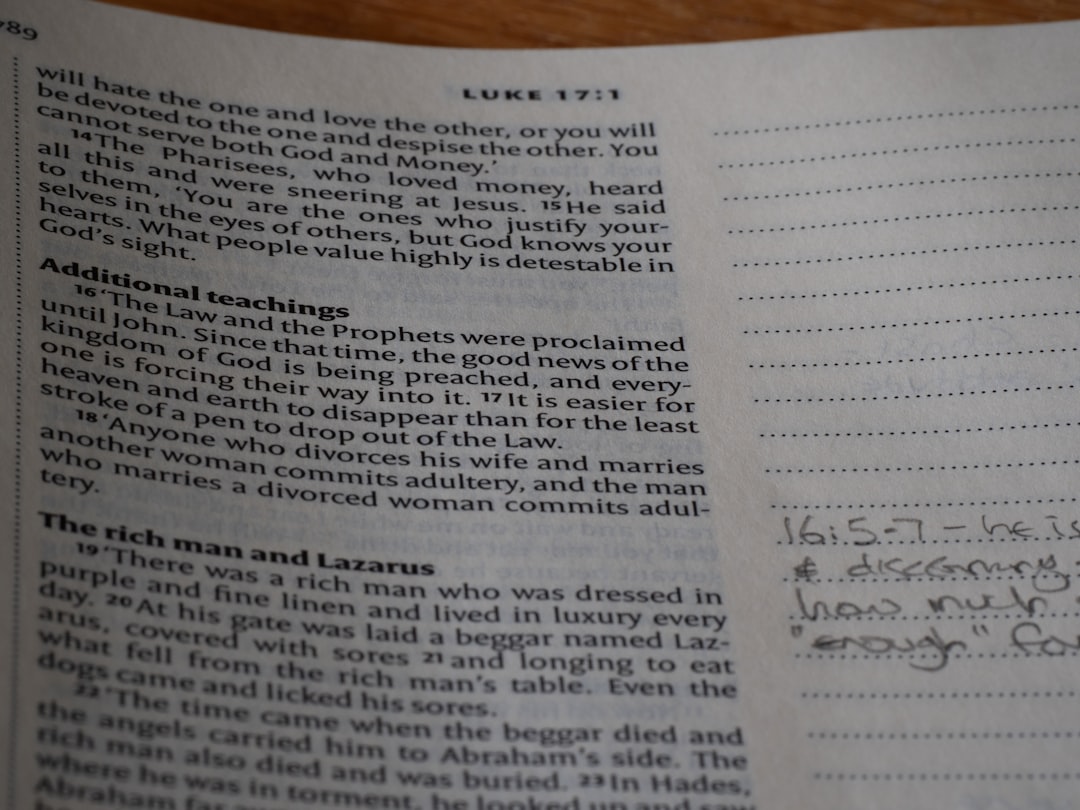 789
LUKE 17:1
will hate the one and love the other, or you will
be devoted to the one and despise the other. You
cannot serve both God and Money.’
14 The Pharisees, who loved money, heard
all this and were sneering at Jesus. 15 He said
to them, ‘You are the ones who justify your-
selves in the eyes of others, but God knows your
hearts. What people value highly is detestable in
God’s sight.
Additional teachings
16 ‘The Law and the Prophets were proclaimed
until John. Since that time, the good news of the
kingdom of God is being preached, and every-
one is forcing their way into it. 17 It is easier for
heaven and earth to disappear than for the least
stroke of a pen to drop out of the Law.
18 ‘Anyone who divorces his wife and marries
another woman commits adultery, and the man
who marries a divorced woman commits adul-
tery.
The rich man and Lazarus
19 ‘There was a rich man who was dressed in
purple and fine linen and lived in luxury every
day. 20 At his gate was laid a beggar named Laz-
arus, covered with sores 21 and longing to eat
what fell from the rich man’s table. Even the
dogs came and licked his sores.
22 ‘The time came when the beggar died and
the angels carried him to Abraham’s side. The
rich man also died and was buried. 23 In Hades,
where he was in torment, he looked up and saw
Abraham far
16:5-7 – he is
& discerning
how much
"enough" for